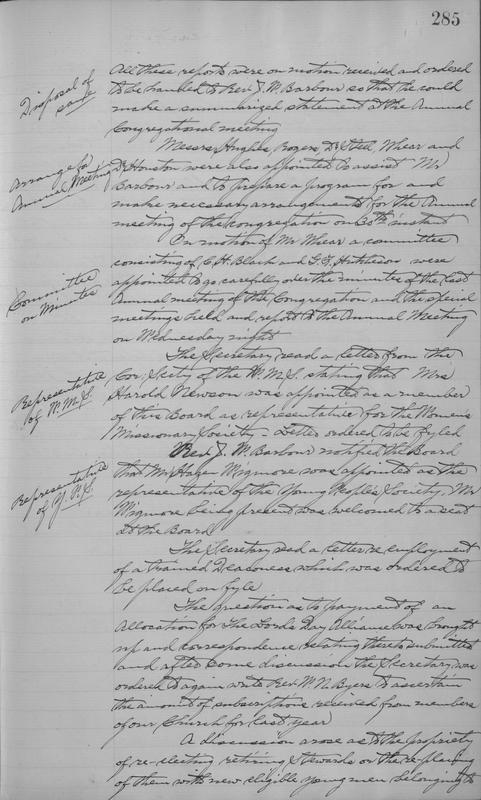 285
Disposal of
same
All these reports were on motion received and ordered
to be handed to Rev J. M. Barbour so that he could
make a summarized statement at the Annual
Congregational meeting
Arrange for
Annual Meeting
Messrs Hughes, Rogers, Dr Steel, Whear and
Dr Houston were also appointed to assist Mr
Barbour and to prepare a program for and
make necessary arrangements for the Annual
meeting of the congregation on 30th instant
Committee
on Minutes
On motion of Mr Whear a committee
consisting of C. H. Black and G. F. were
appointed to go carefully over the minutes of the last
Annual meeting of the Congregation and the special
meetings held and report to the Annual Meeting
on Wednesday night
Representative
of W.M.S.
The Secretary read a letter from the
Cor. Secty of the W.M.S. stating that Mrs
Harold Newson was appointed as a member
of this Board as representative for the Womens
Missionary Society - Letter ordered to be fyled
Representative
of Y.P.S.
Rev J. M. Barbour notified the Board
that Mr Wigmore was appointed as the
representative of the Young Peoples Society, Mr
Wigmore being present was welcomed to a seat
at the Board
The Secretary read a letter re employment
of a trained Deaconess which was ordered to
be placed on fyle
The question as to payment of an
Allocation for The Lords Day Alliance was brought
up and correspondence relating thereto submitted
and after some discussion the Secretary was
ordered to again write Rev. W. N. Byers to ascertain
the amount of subscriptions received from members
of our Church for last year
A discussion arose as to the propriety
of re-electing retiring Stewards or the re-placing
of them with new eligible young men belonging to